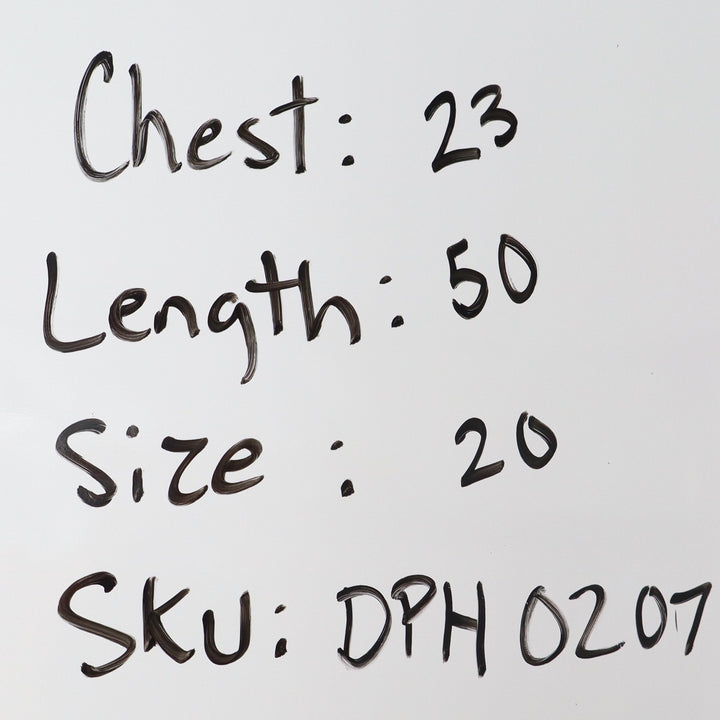 Chest: 23
Length: 50
Size: 20
SKU: DPH 0207